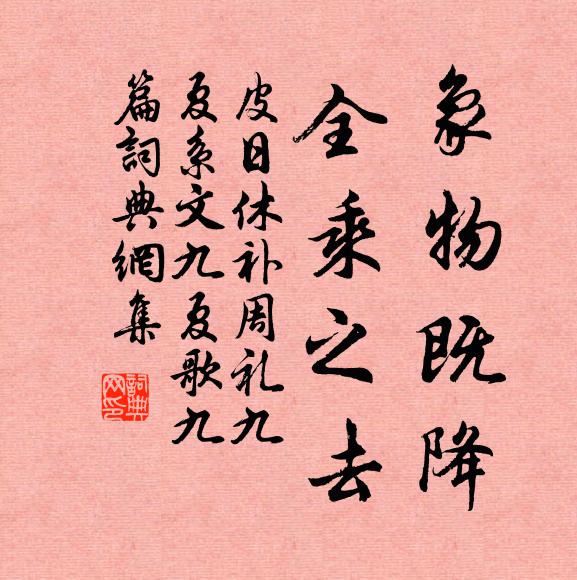 象物既降
全乘之去
皮日休补周礼九
夏系文九夏歌九
篇詞典網集
詞典
网印